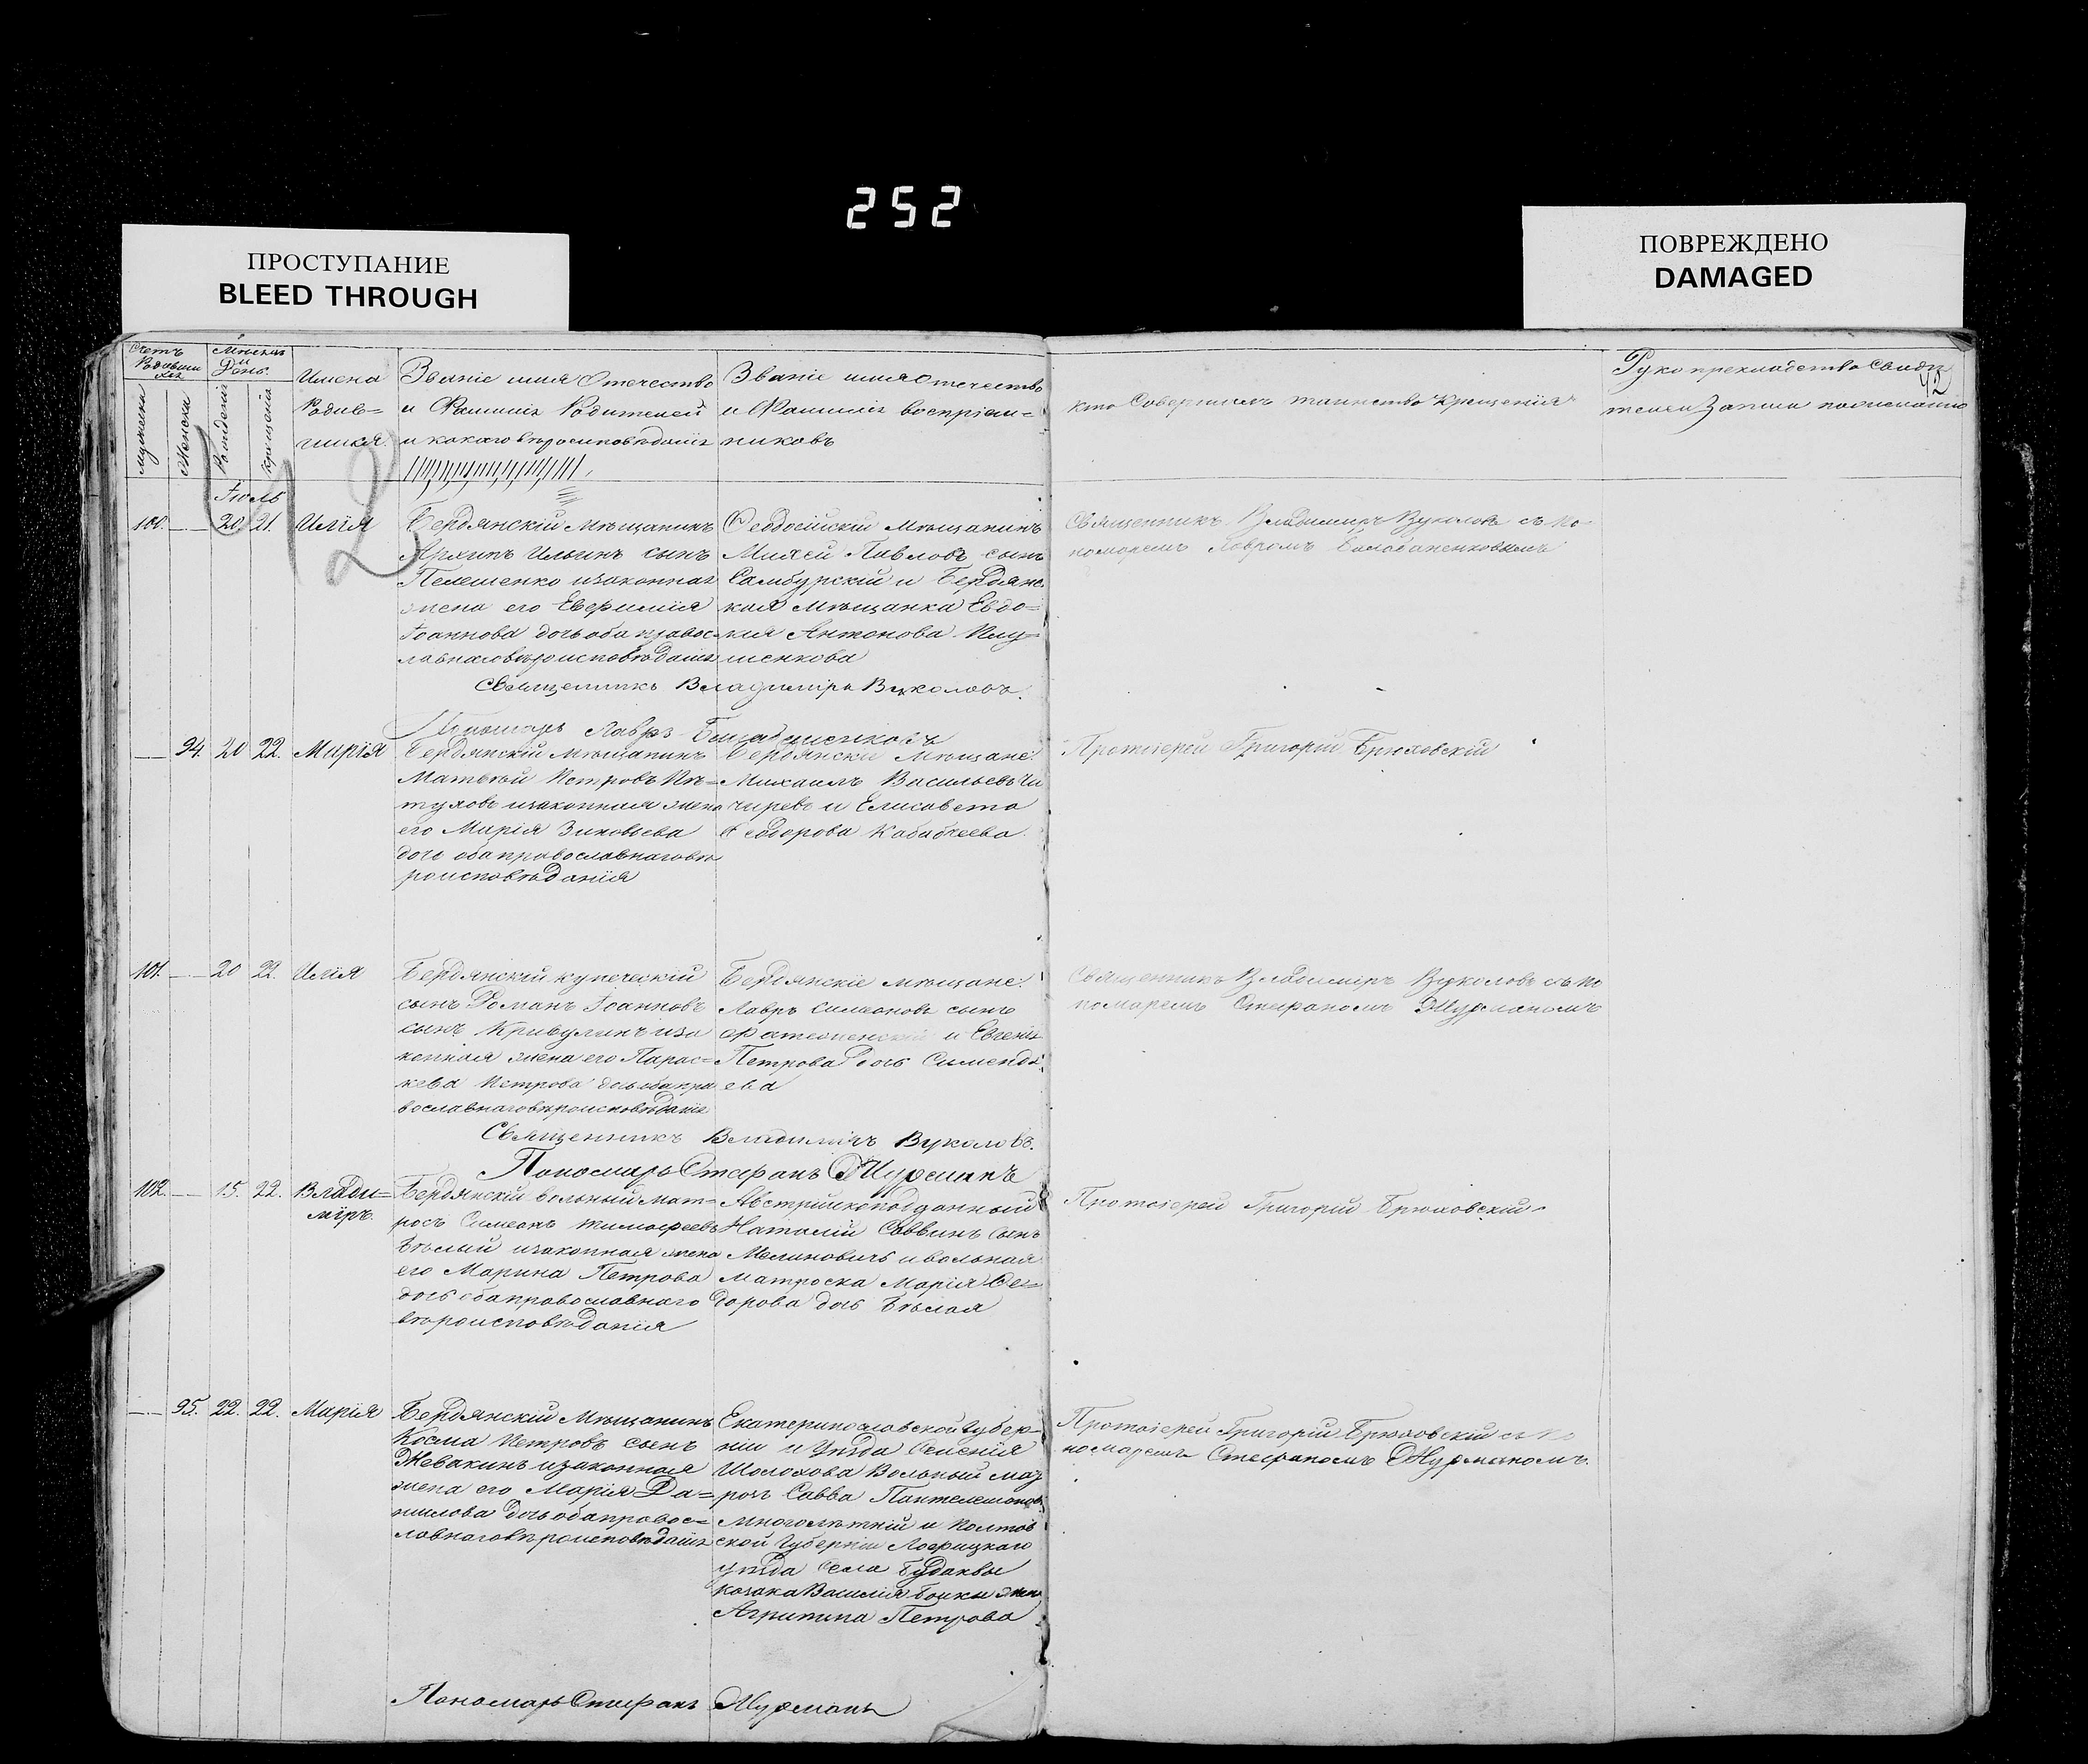 252
ПРОСТУПАНИЕ
BLEED THROUGH
ПОВРЕЖДЕНО
DAMAGED
42
Счетъ
Мѣсяцъ
и
День.
мужеска
Женска
Рожденія
Крещенія
Имена
Родив=
шихся.
Званіе имя Отечество
и Фамилія Родителей
и какого вѣроисповѣданія
Званіе имя Отечество
и Фамилія воспріем=
никовъ
кто Совершилъ таинство крещенія
Рукоприкладство свидѣ
телей записи
42
Іюль
100. 20. 21. Илія
Бердянскій Мѣщанинъ
Архипъ Ильинъ сынъ
Пелешенко и законная
жена его Евфимія
Іоаннова дочь оба правос=
лавнаго вѣроисповѣданія
Ѳеодосійскій Мѣщанинъ
Михей Павловъ сынъ
Самбурскій и Бердянс
кая Мѣщанка Евдо=
кія Антонова
Священникъ Владиміръ Вуколовъ съ по
номаремъ Лавромъ
Священникъ Владиміръ Вуколовъ.
Пономарь Лавръ
94. 20 22. Марія
Бердянскій Мѣщанинъ
Матвѣй Петровъ
и законная жена
его Марія Зиновьева
дочь оба православнаго вѣ
роисповѣданія
Бердянскіе Мѣщане:
Михаилъ Васильевъ
и Елисавета
Ѳеодорова
Протоіерей Григорій Брюховскій
101. 20 22. Илія
Бердянскій купеческій
сынъ Романъ Іоанновъ
сынъ Кривулинъ и за
конная жена его Парас=
кева Петрова дочь оба пра
вославнаго вѣроисповѣданія
Бердянскіе мѣщане:
Лавръ Симеоновъ сынъ
и Евгенія
Петрова дочь
ева
Священникъ Владиміръ Вуколовъ съ по
номаремъ Стефаномъ Журманомъ
Священникъ Владиміръ Вуколовъ.
Пономарь Стефанъ Журманъ
102. 15. 22. Влади=
міръ.
Бердянскій вольный мат=
росъ Симеонъ Тимофеевъ
Бѣлый и законная жена
его Марина Петрова
дочь оба православнаго
вѣроисповѣданія
Австрійскоподданный
Наталій Саввинъ сынъ
Милиновичъ и вольная
матроска Марія Ѳе=
дорова дочь Бѣлая
Протоіерей Григорій Брюховскій
95. 22. 22. Марія
Бердянскій Мѣщанинъ
Косма Петровъ сынъ
Жевакинъ и законная
жена его Марія Да=
нилова дочь оба правос=
лавнаго вѣроисповѣданія
Екатеринославской Губер=
ніи и Уѣзда Селенія
Шолохова Вольный мат
росъ Савва Пантелеимоновъ
Многолѣтній и Полтав
ской Губерніи Лохвицкаго
уѣзда Села
козака Василія Бойки жена
Агрипина Петрова
Протоіерей Григорій Брюховскій съ по
номаремъ Стефаномъ Журманомъ.
Пономарь Стефанъ Журманъ